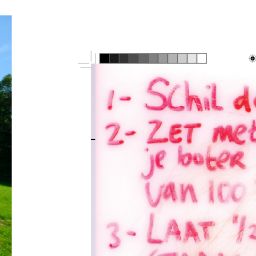 1- Schil d
2- ZET met
je boter
van 100
3- LAAT '12